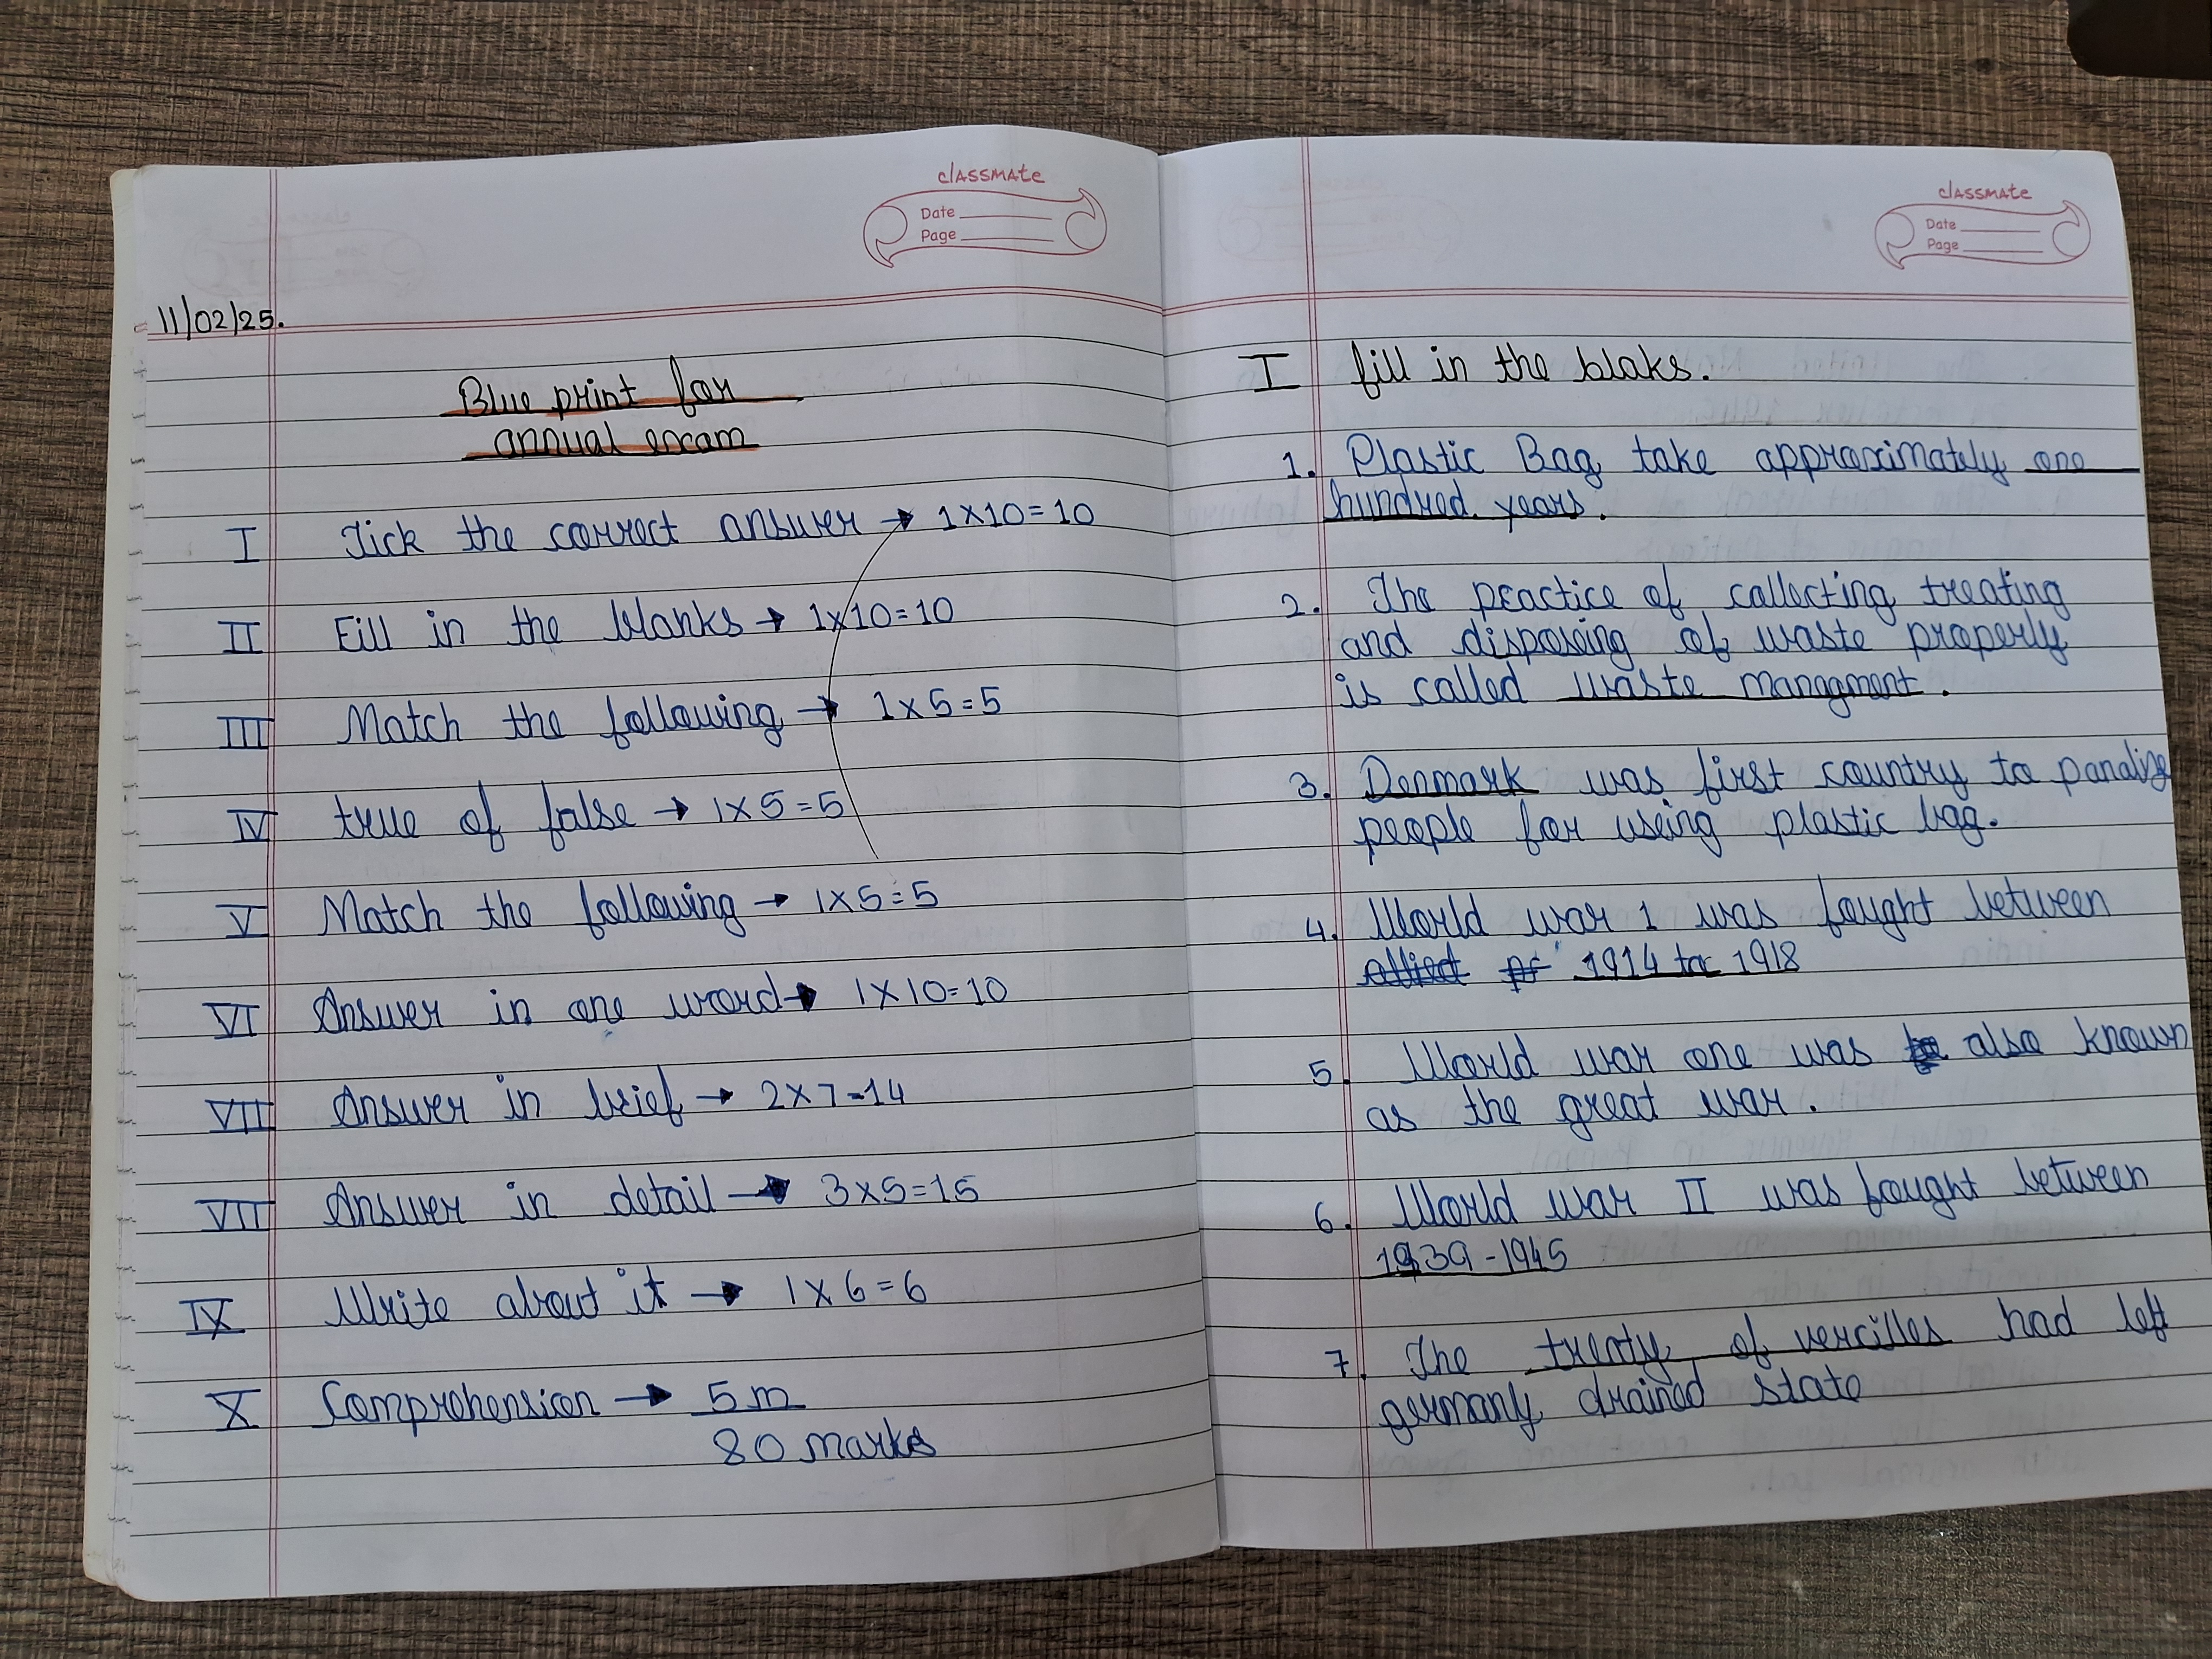 classmate
Date
Page
11/02/25.
Blue print for
annual excam
I Tick the correct answer → 1×10=10
II Fill in the blanks → 1×10=10
III Match the following → 1×5=5
IV true of false → 1×5=5
V Match the following → 1×5=5
VI Answer in one word → 1×10=10
VII Answer in brief → 2×7=14
VII Answer in detail → 3×5=15
IX Write about it → 1×6=6
X Comprehension → 5m
80 marks
classmate
Date
Page
I fill in the blaks.
1. Plastic Bag take approximately one
hundred years.
2. The practice of collecting treating
and disposeing of waste properly
is called waste mangment.
3. Denmark was first country to panalize
people for useing plastic bag.
4. World war 1 was fought between
1914 to 1918
5. World war one was also known
as the great war.
6. World war II was fought between
1939-1945
7. The treaty of vercilles had left
germany drained state